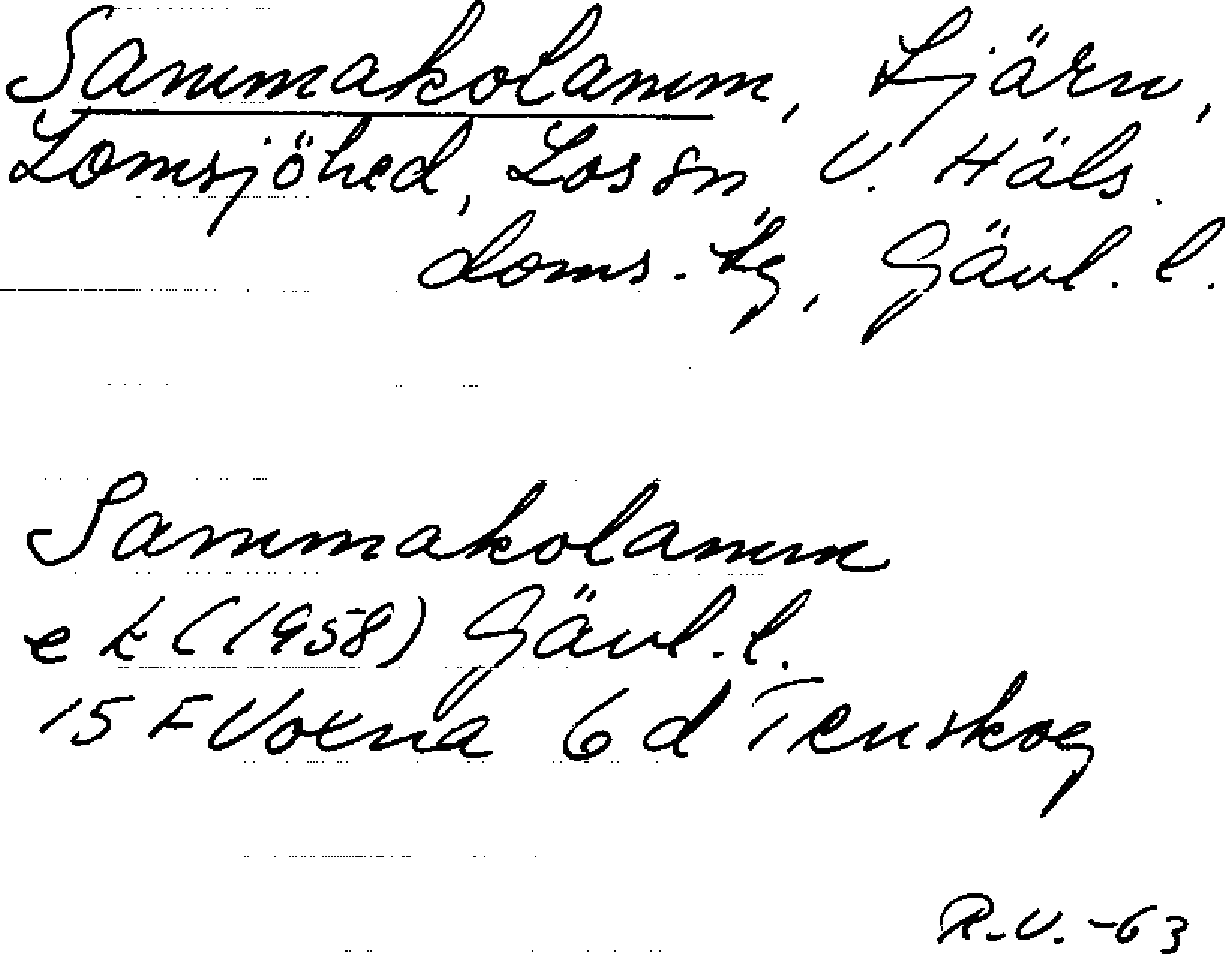 Sammakolamm, tjärn,
Lomsjöhed, Los sn, V. Häls.
doms. tg, Gävl. l.
Sammakolamm
e k (1958) Gävl. l.
15 F Voxna 6 d Tenskog
R.V. -63